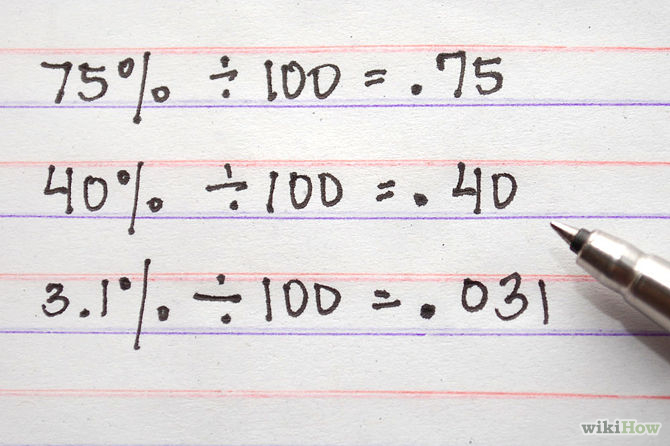 75% ÷ 100 = .75
40% ÷ 100 = .40
3.1% ÷ 100 = .031
wikiHow